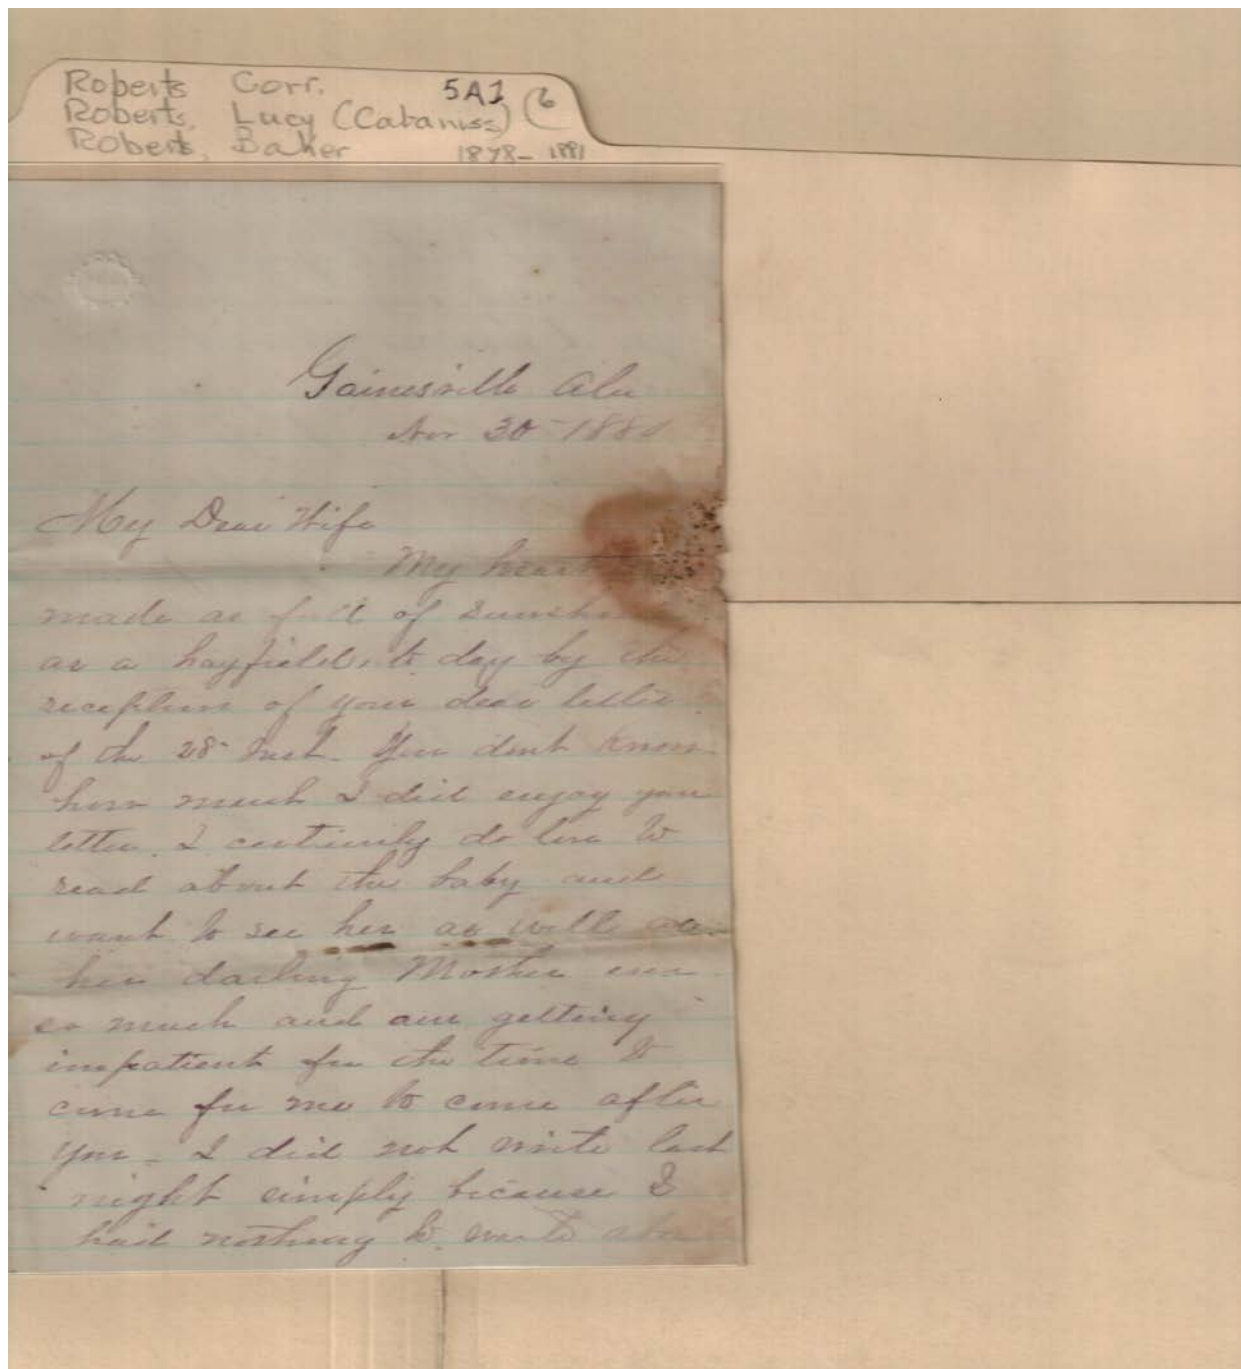 Roberts Corr. 5A1 (6
Roberts, Lucy (Cabaniss)
Roberts, Baker 1878-1881
Gainesville Ala
Nov 30 - 188
My Dear Wife
My heart
made as full of sunsh
as a hayfield, to day by the
reception of your dear letter
of the 28 - Inst. You dont know
how much I did enjoy your
letter. I certinily do love to
read about the baby and
want to see her as well as
her darling Mother ever
so much and am getting
impatient for the time to
come for me to come after
you - I did not write last
night simply because I
had nothing to write abo